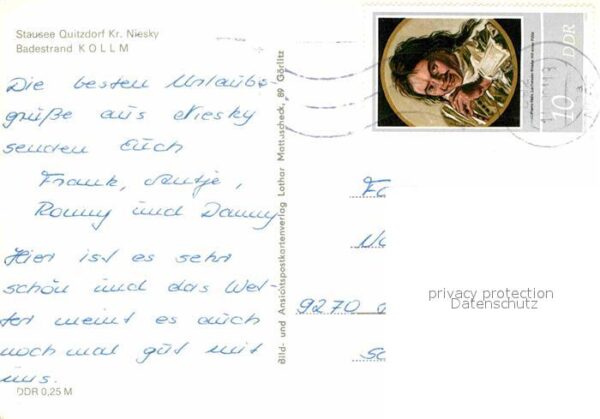 Stausee Quitzdorf Kr. Niesky
Badestrand KOLLM
Die besten Urlaubs
grüße aus Niesky
senden Euch
Frank, Antje,
Ronny und Danny
Hier ist es sehr
schön und das Wet-
ter meint es auch
noch mal gut mit
uns.
DDR 0,25 M
Bild- und Ansichtspostkartenverlag Lothar Mattuscheck, 89 Görlitz
DDR
10
9270
privacy protection
Datenschutz